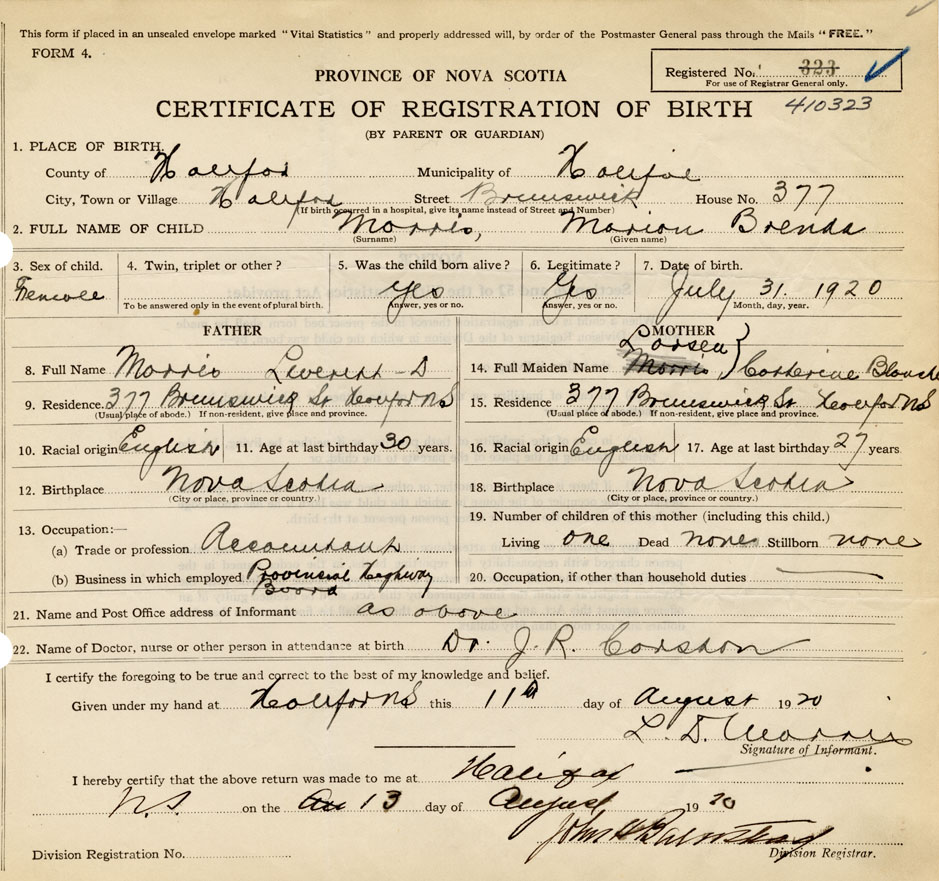 This form if placed in an unsealed envelope marked "Vital Statistics" and properly addressed will, by order of the Postmaster General pass through the Mails "FREE."
FORM 4.
Registered No. 323
For use of Registrar General only.
PROVINCE OF NOVA SCOTIA
CERTIFICATE OF REGISTRATION OF BIRTH 410323
(BY PARENT OR GUARDIAN)
1. PLACE OF BIRTH.
County of Halifax Municipality of Halifax
City, Town or Village Halifax Street Brunswick House No. 377
(If birth occurred in a hospital, give its name instead of Street and Number)
2. FULL NAME OF CHILD Morris, Marion Brenda
(Surname) (Given name)
3. Sex of child. 4. Twin, triplet or other? 5. Was the child born alive? 6. Legitimate? 7. Date of birth.
Female Yes Yes July 31. 1920
To be answered only in the event of plural birth. Answer, yes or no. Answer, yes or no. Month, day, year.
FATHER
8. Full Name Morris D
9. Residence. 377 Brunswick St Halifax NS
(Usual place of abode.) If non-resident, give place and province.
10. Racial origin English 11. Age at last birthday 30 years.
12. Birthplace Nova Scotia
(City or place, province or country.)
13. Occupation:—
(a) Trade or profession Accountant
(b) Business in which employed Provincial Highway
Board
MOTHER
Larsen
14. Full Maiden Name Morris } Catherine Blanche
15. Residence 377 Brunswick St Halifax NS
(Usual place of abode.) If non-resident, give place and province.
16. Racial origin English 17. Age at last birthday 27 years
18. Birthplace Nova Scotia
(City or place, province or country.)
19. Number of children of this mother (including this child.)
Living one Dead none Stillborn none
20. Occupation, if other than household duties
21. Name and Post Office address of Informant as above
22. Name of Doctor, nurse or other person in attendance at birth Dr. J. R. Corston
I certify the foregoing to be true and correct to the best of my knowledge and belief.
Given under my hand at Halifax NS this 11th day of August 1920
L. D. Morris
Signature of Informant.
I hereby certify that the above return was made to me at Halifax
N.S. on the 13 day of August 1920
Division Registration No. Division Registrar.